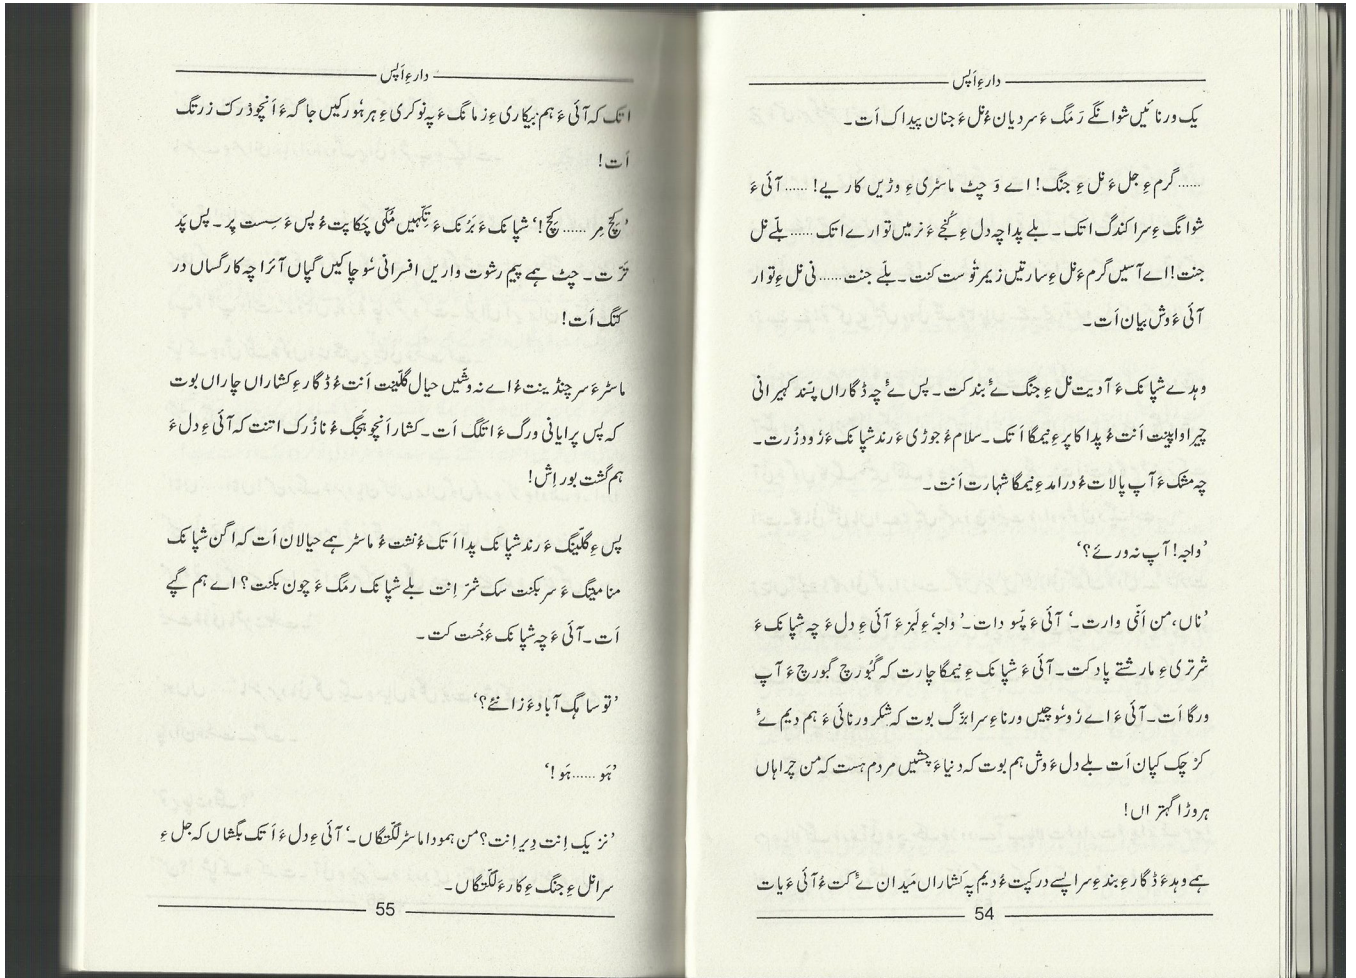 دارءِ اَپس
یک ورنائیں شوانگے رَمگ ءَ سردیان ءُ نل ءَ جنان پیداک اَت۔
......گرم ءِ جل ءَ نل ءِ جنگ! اے وَ چٹ ماسٹری ءِ وڑیں کاریے! ...... آئی ءَ
شوانگ ءِ سرا کندگ اتک۔ بلے پدا چہ دل ءِ کُنجے ءَ نرمیں توارے اتک ...... بلّے نل
جنت! اے آسیں گرم ءَ نل ءِ سارتیں زیمر تُوست کنت۔ بلّے جنت...... نی نل ءِ توار
آئی ءَ وش بیان اَت۔
وہدے شپانک ءَ آ دیت نل ءِ جنگ ئے بند کت۔ پس ئے چہ ڈگاراں پسّند کہیرانی
چیرا واپینت اَنت ءُ پدا کاپر ءِ نیمگا اَتک۔ سلام ءُ جوڑی ءَ رند شپانک ءَ زُوت زُرت۔
چہ مشک ءَ آپ پالات ءُ درامد ءِ نیمگا شہارت اَنت۔
’واجہ! آپ نہ ورئے؟‘
’ناں، من اَنّی وارت۔‘ آئی ءَ پَسو دات۔ ’واجہ‘ ءِ لبز ءَ آئی ءِ دل ءَ چہ شپانک ءَ
شرتری ءِ مارشتے پاد کت۔ آئی ءَ شپانک ءِ نیمگا چارت کہ گُبورچ گبورچ ءَ آپ
ورگا اَت۔ آئی ءَ اے رُوسُوچیں ورنا ءِ سرا بزّگ بوت کہ شکر ورنائی ءَ ہم دیم ئے
کرْ چک کپان اَت بلے دل ءَ وش ہم بوت کہ دنیا ءَ چشیں مردم ہست کہ من چراہاں
ہر وڑا گہتر اں!
ہمے وہد ءَ ڈگار ءِ بند ءِ سرا پسے در کپت ءُ دیم پہ کشاراں میدان ئے کت ءُ آئی ءَ یات
54
دارءِ اَپس
اتک کہ آئی ءَ ہم بیکاری ءِ زمانگ ءَ پہ نوکری ءِ ہر ہورکیں جاگہ ءَ اَنچو ڈرک زرتگ
اَت!
’کِچّ مِر ...... کِچّ!‘ شپانک ءَ بَرُنک ءَ تکّہیں مُکّی چَکاپت ءُ پس ءَ سِست پر۔ پس پَد
تَرّت۔ چٹ ہمے پیم رشوت واریں افسرانی سُوچاکیں گپاں آئرا چہ کارگساں در
کتگ اَت!
ماسٹر ءَ سر چنڈینت ءُ اے نہ وشّیں حیال گلّینت اَنت ءُ ڈگار ءِ کشاراں چاراں بوت
کہ پس پرایانی ورگ ءَ اتلگ اَت۔ کشار اَنچو ہَجگ ءُ نازُرک اتنت کہ آئی ءِ دل ءَ
ہم گشت بور اِش!
پس ءِ گلّینگ ءَ رند شپانک پدا اَتک ءُ نشت ءُ ماسٹر ہمے حیالان اَت کہ اگن شپانک
منا میتگ ءَ سر بکنت سک شرّ اِنت بلے شپانک رمگ ءَ چون بکنت؟ اے ہم گپے
اَت۔ آئی ءَ چہ شپانک ءَ جُست کت۔
’تو ساہگ آباد ءَ زانئے؟‘
’ہَو ...... ہَو!‘
’نزیک اِنت دِیر اِنت؟ من ہمودا ماسٹر لگّتگاں۔‘ آئی ءِ دل ءَ اَتک بگشاں کہ جل ءِ
سرا نل ءِ جنگ ءِ کار ءَ لگّتگاں۔
55